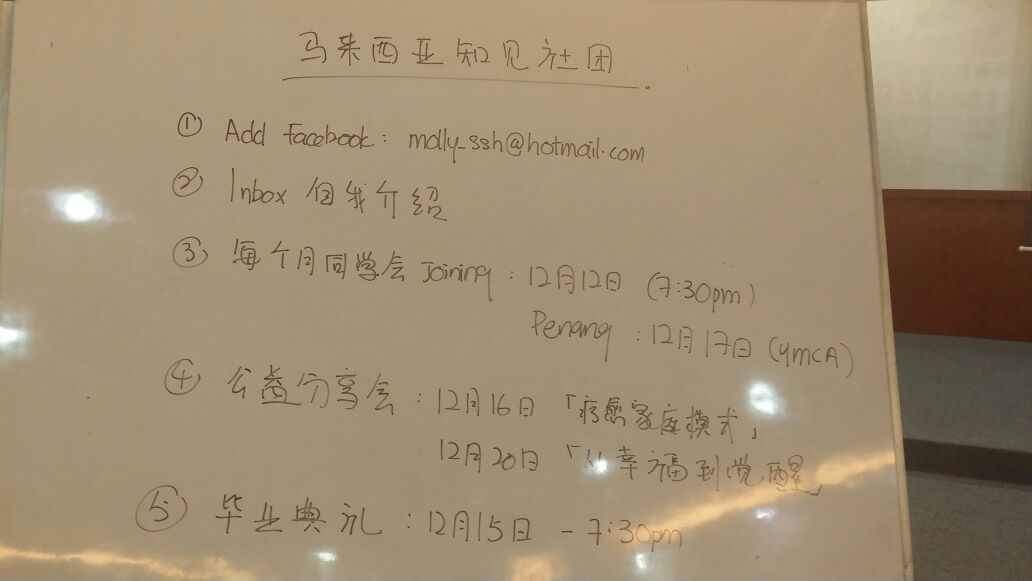 马来西亚知见社团
① Add Facebook: molly_ssh@hotmail.com
② Inbox 自我介绍
③ 每个月同学会 Joining : 12月12日 (7:30pm)
Penang : 12月17日 (YMCA)
④ 公益分享会 : 12月16日 「疗愈家庭模式」
12月20日 「从幸福到觉醒」
⑤ 毕业典礼 : 12月15日 - 7:30pm